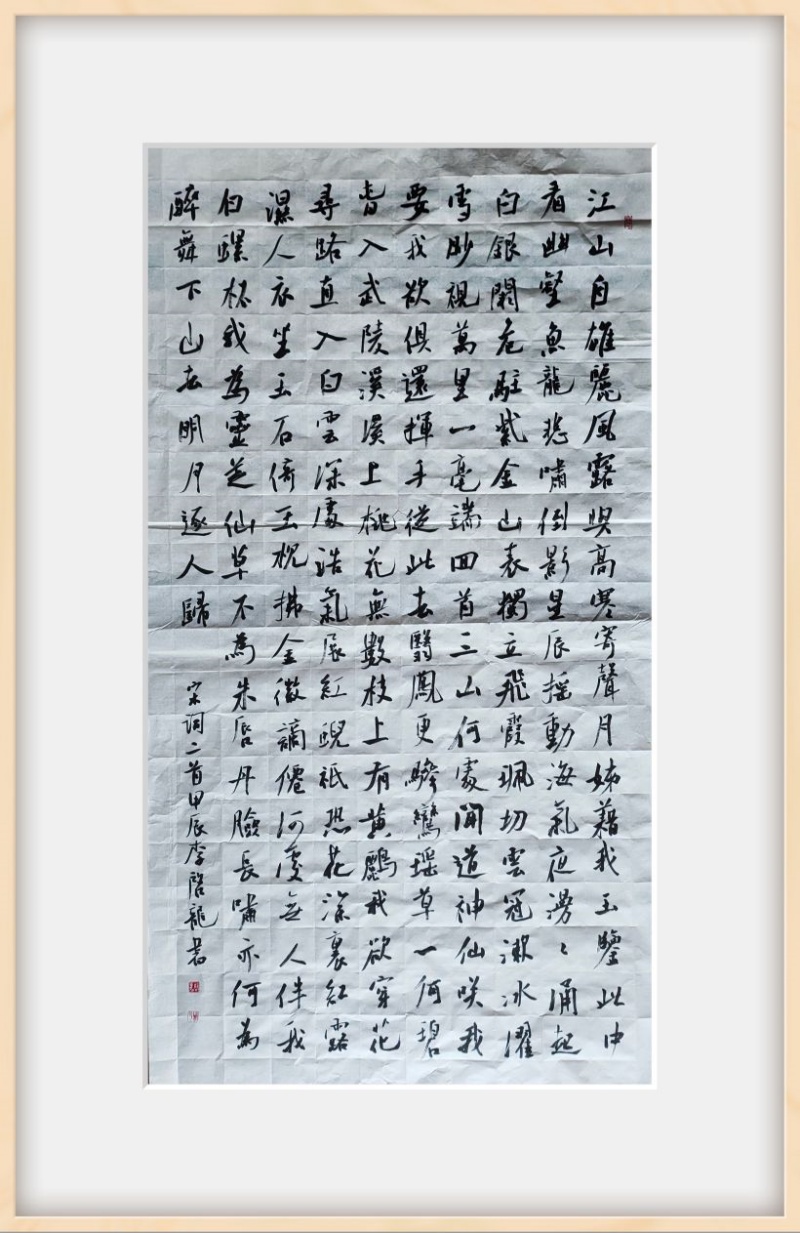 江山自雄麗風露與高寒寄聲月姊藉我玉鑒此中
看幽壑魚龍悲嘯倒影星辰搖動海氣夜漫〻涌起
白銀闕危駐紫金山表獨立飛霞珮切雲冠漱冰濯
雪眇視萬里一毫端回首三山何處聞道神仙咲我
要我欲俱還揮手從此去翳鳳更驂鸞瑤草一何碧
春入武陵溪溪上桃花無數枝上有黃鸝我欲穿花
尋路直入白雲深處浩氣展紅蜺祇恐花深裏紅露
濕人衣坐玉石倚玉枕拂金徽謫僊何處無人伴我
白螺杯我為靈芝仙草不為朱唇丹臉長嘯亦何為
醉舞下山去明月逐人歸
宋詞二首甲辰李啓龍書